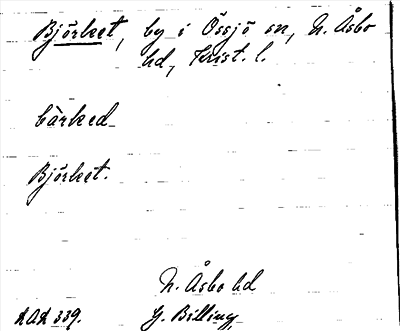 Björket, by i Össjö sn, N. Åsbo
hd, Krist. l.
bàrked
Björket.
N. Åsbo hd
LAL 339. G. Billing